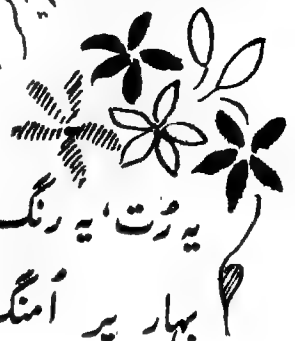 یہ رُت، یہ رنگ
بہار پر اُمنگ